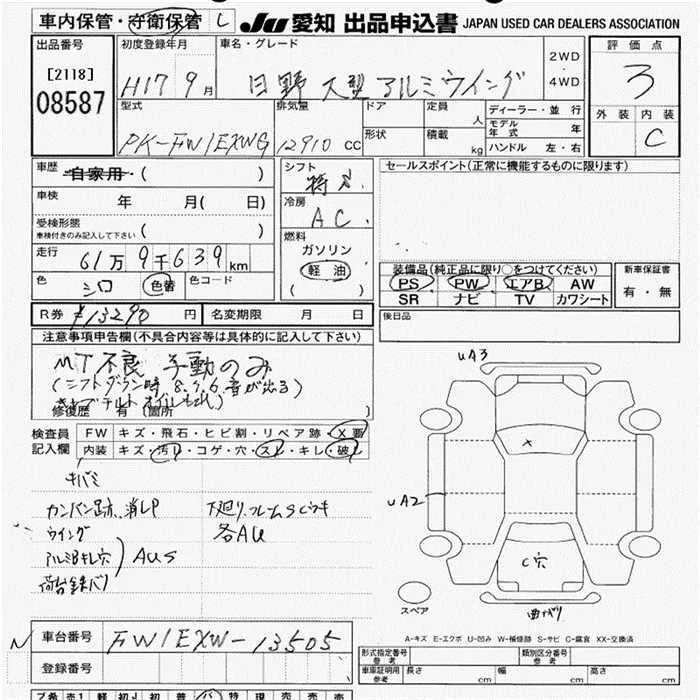 車内保管・守衛保管 L JU 愛知 出品申込書 JAPAN USED CAR DEALERS ASSOCIATION
出品番号 初度登録年月 車名・グレード 2WD・4WD 評価点
[2118] 08587 H17 9月 日野 大型 アルミウイング 3
型式 排気量 ドア 定員 人 ディーラー・並行 外装 内装
モデル年式 年
PK-FW1EXWG 12910 cc 形状 積載 kg ハンドル 左・右 C
車歴 自家用・( ) シフト セールスポイント(正常に機能するものに限ります)
車検 年 月( 日) 冷房 AC
受検形態 ( )
車検付きのみ記入して下さい
燃料 ガソリン 軽油 ( )
走行 61万9千639km
装備品(純正品に限り○をつけてください) 新車保証書
PS PW エアB AW 有・無
SR ナビ TV カワシート
色 シロ 色替 色コード
R券 ¥13290円 名変期限 月 日 後日品
注意事項申告欄(不具合内容等は具体的に記入して下さい)
MT不良 手動のみ
(シフトダウン時 8.7.6 音が出る)
キャブチルト オイルもれ
修復歴 有 (箇所 )
検査員記入欄 FW キズ・飛石・ヒビ割・リペア跡・X要
内装 キズ・汚れ・コゲ・穴・スレ・キレ・破れ
キバミ
カンバン跡、消しP 下廻り、フレームSCウキ
ウイング 各AU
アルミBキレ穴 AUS
荷台鉄バリ
UA3
X
UA2
C穴
スペア 曲がり
A-キズ E-エクボ U-凹み W-補修跡 S-サビ C-腐食 XX-交換済
N 車台番号 FW1EXW-13505
登録番号
形式指定番号 参考 類別区分番号 参考
車庫証明用 参考 長さ cm 幅 cm 高さ cm